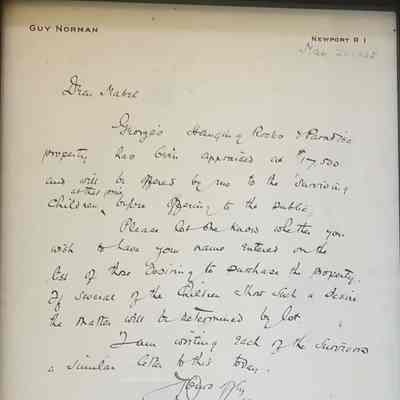 GUY NORMAN
NEWPORT R I
Dear Mabel
George's Hanging Rocks & Paradise
property has been appraised at $17,500
and will be offered by me to the surviving
at this price
children, before offering to the public.
Please let me know whether you
wish to have your name entered on the
list of those desiring to purchase the property.
If several of the children show such a desire
the matter will be determined by lot
I am writing each of the survivors
a similar letter to this today.
Yours